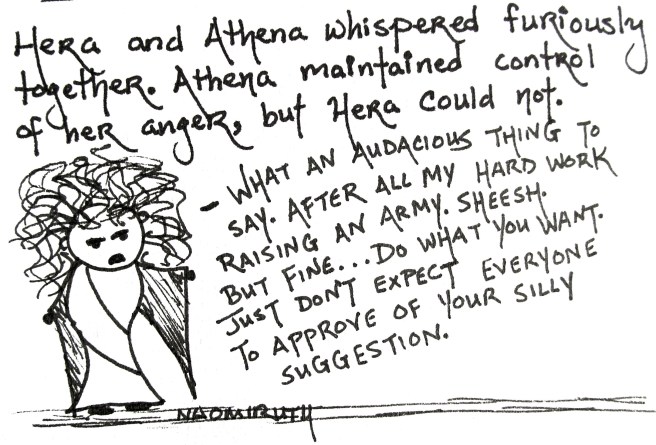 Hera and Athena whispered furiously
together. Athena maintained control
of her anger, but Hera could not.
- WHAT AN AUDACIOUS THING TO
SAY. AFTER ALL MY HARD WORK
RAISING AN ARMY. SHEESH.
BUT FINE... DO WHAT YOU WANT.
JUST DON'T EXPECT EVERYONE
TO APPROVE OF YOUR SILLY
SUGGESTION.
NAOMIRUTH